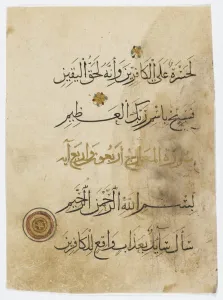 لحسرة على الكافرين وإنه لحق اليقين
فسبح باسم ربك العظيم
سورة المعارج أربعون وأربع آية
بسم الله الرحمن الرحيم
سأل سائل بعذاب واقع للكافرين